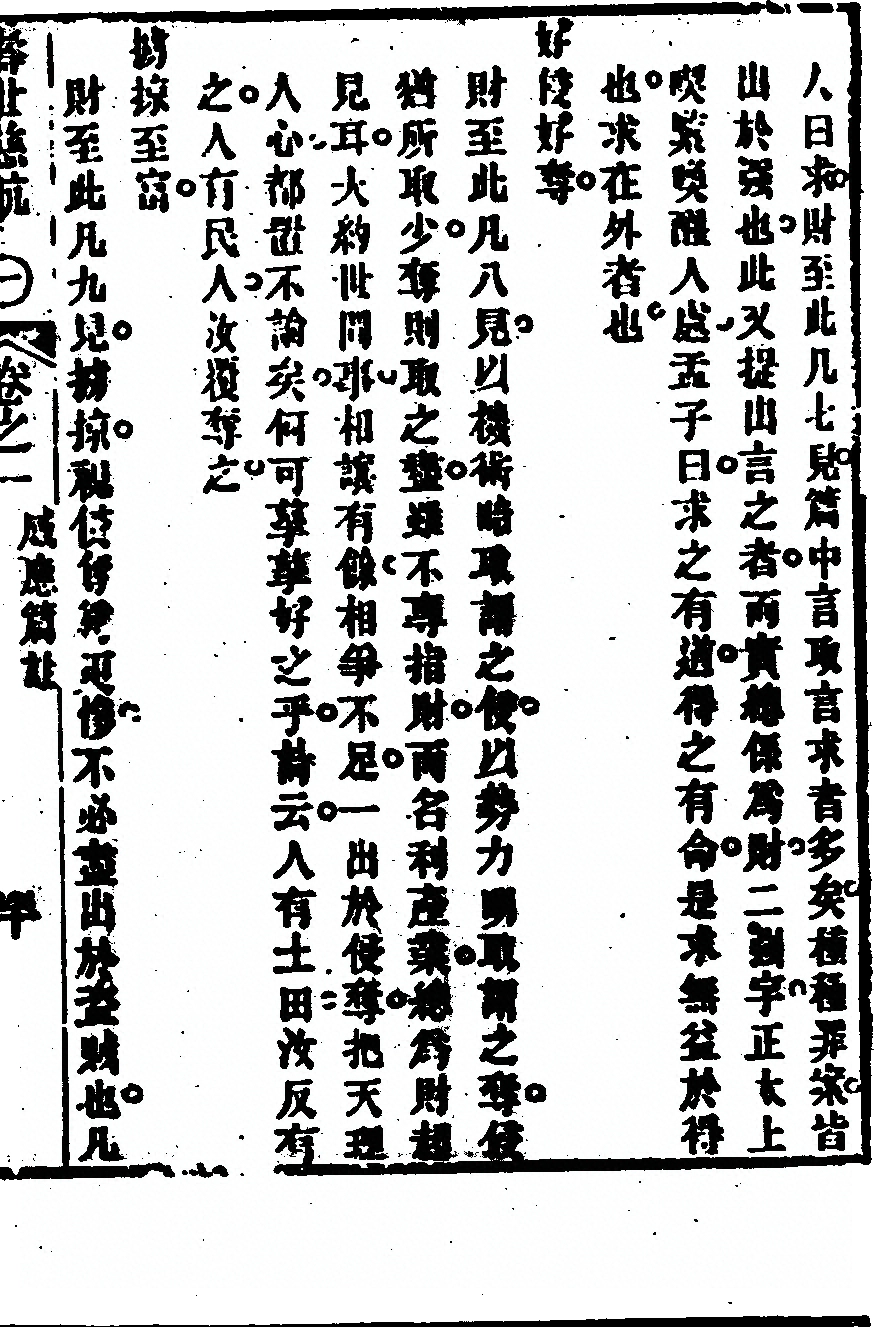 人曰求財至此凡七見篇中言取言求者多矣種種罪案皆
出於强也此又提出言之者而實總係爲財二强字正太上
喫緊喚醒人處孟子曰求之有道得之有命是求無益於得
也求在外者也
好侵好奪
財至此凡八見以機術暗取謂之侵以勢力明取謂之奪侵
猶所取少奪則取之盡雖不專指財而名利產業總爲財起
見耳大約世間事相讓有餘相爭不足一出於侵奪把天理
人心都置不論矣何可孳孳好之乎詩云人有土田汝反有
之人有民人汝覆奪之
擄掠至富
財至此凡九見擄掠視侵奪更慘不必盡出於盜賊也凡
普世慈航
一
卷之一
感應篇註